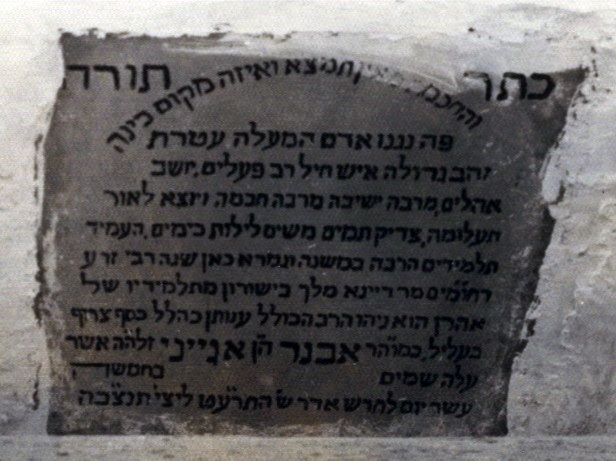 כתר תורה
והחכמה מאין תמצא ואיזה מקום בינה
פה נגנז אדם המעלה עטרת
זהב גדולה איש חיל רב פעלים, יושב
אהלים, מרבה ישיבה מרבה חכמה, ויוצא לאור
תעלומה, צדיק תמים משים לילות כימים, העמיד
תלמידים הרבה במשנה וגמרא כאן שנה רבי זרע
רחומים מר דיינא מלך בישורון מתלמידיו של
אהרן הוא ניהו הרב הכולל ענותן כהלל כסף צרוף
בעליל, כמוהר אבנר הן אגייני זלה״ה אשר
עלה שמים בחמשה
עשר יום לחדש אדר ש׳ התרע״ט ליצי׳ תנצ״בה